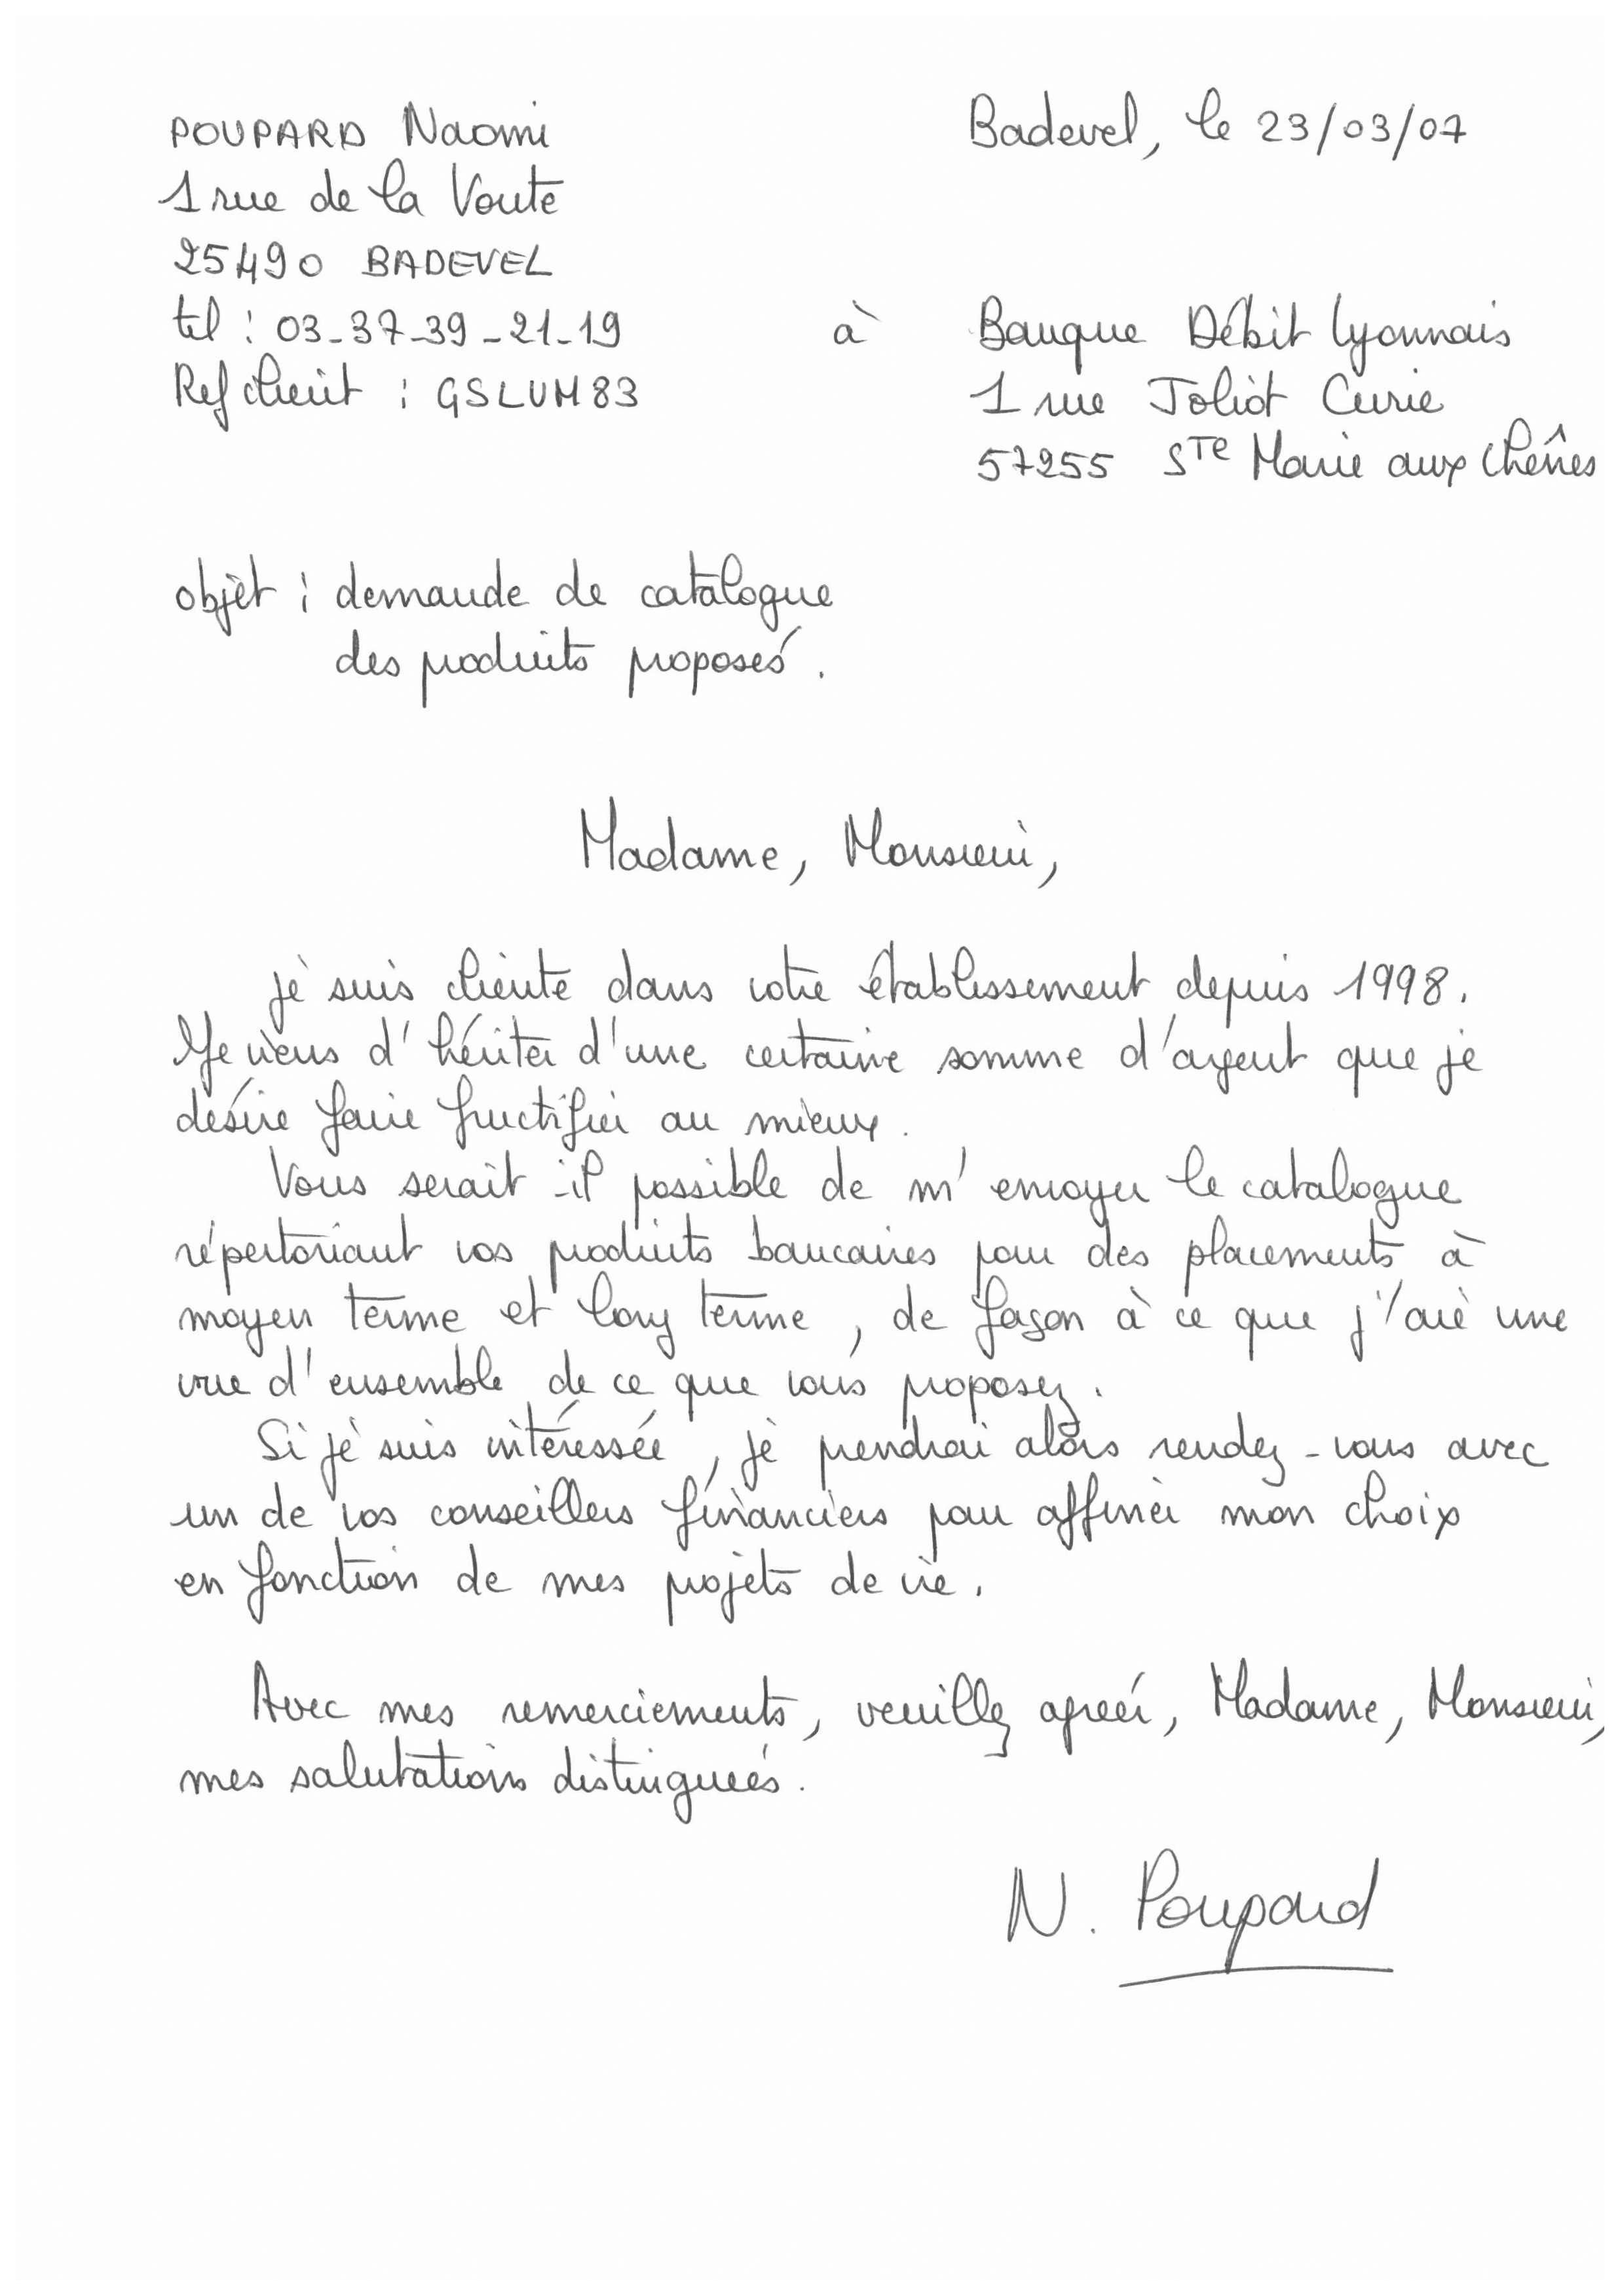 POUPARD Naomi
Badevel, le 23/03/07
1 rue de la Voute
25490 BADEVEL
tel : 03-37-39-21-19
à Banque Débit Lyonnais
Ref client : GSLUM83
1 rue Joliot Curie
57255 Ste Marie aux Chênes
objet : demande de catalogue
des produits proposés.
Madame, Monsieur,
je suis cliente dans votre établissement depuis 1998.
Je viens d'hériter d'une certaine somme d'argent que je
désire faire fructifier au mieux.
Vous serait-il possible de m'envoyer le catalogue
répertoriant vos produits bancaires pour des placements à
moyen terme et long terme, de façon à ce que j'aie une
vue d'ensemble de ce que vous proposez.
Si je suis intéressée, je prendrai alors rendez-vous avec
un de vos conseillers financiers pour affiner mon choix
en fonction de mes projets de vie.
Avec mes remerciements, veuillez agréer, Madame, Monsieur,
mes salutations distinguées.
N. Poupard